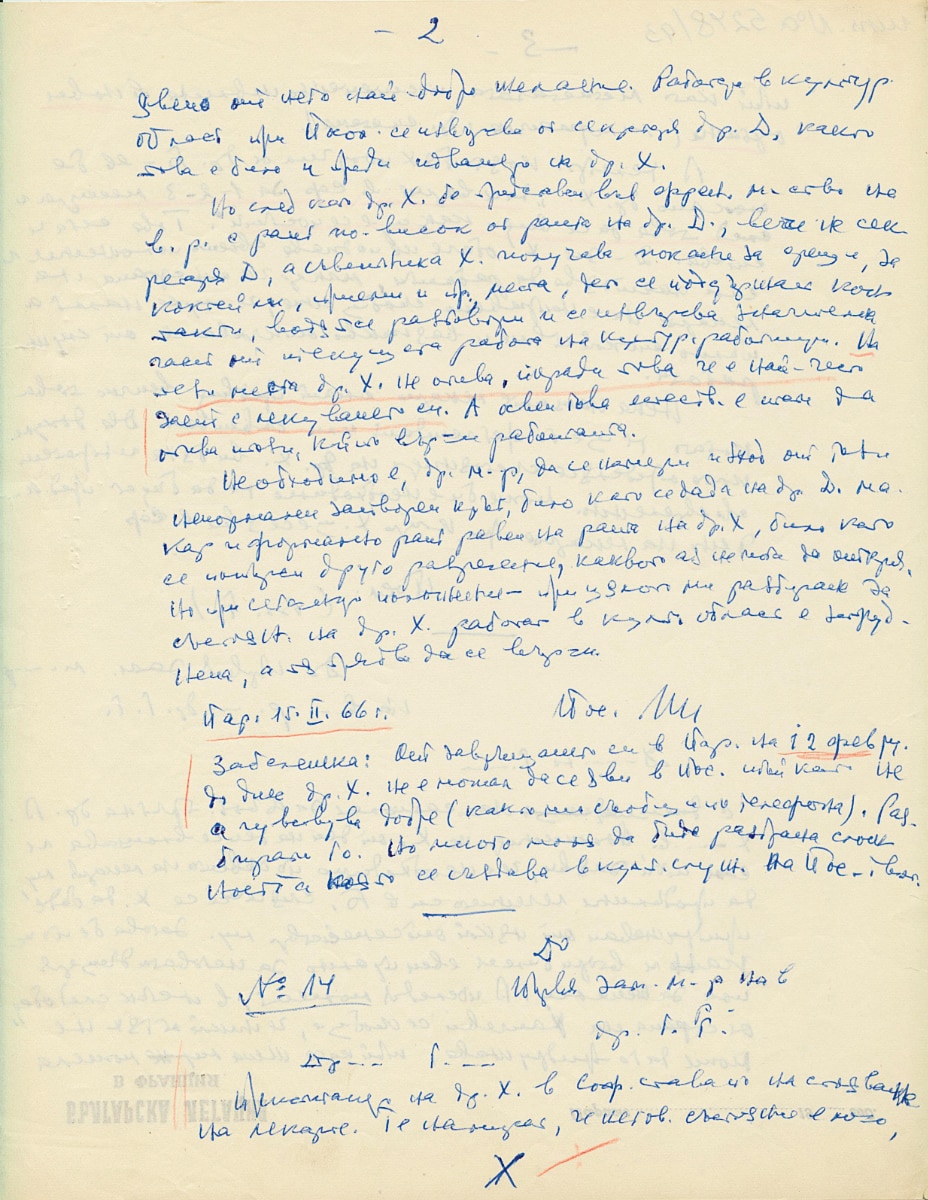 - 2
звено от него най-добро желание. Работата в културн.
област при Пос. се извършва от секретаря др. Д., както
това е било и преди идването на др. Х.
Но след като др. Х. бе представен във френск. м-ство на
в. р. с ранг по-висок от ранга на др. Д., вече не сек-
ретаря Д., а съветника Х. получава покани за срещи, за
коктейли, приеми и др. места, дет се поддържат кон-
такти, водят се разговори и се извършва значителна
част от текущата работа на културн. работници. На
тези места др. Х. не отива, поради това че е най-често
зает с лекуването си. А освен това естеств. е там да
отива този, който върши работата.
Необходимо е, др. м-р, да се намери изход от този
ненормален затворен кръг, било като се даде на др. Д. ма-
кар и формално ранг равен на ранга на др. Х, било като
се потърси друго разрешение, каквото аз не мога да открия.
Но при сегашното положение - при цялото ми разбиране за
състоян. на др. Х. работат в култ. област е затруд-
нена, а тя трябва да се върши.
Пар. 15. II. 66 г.
Пос.
Забележка: От завръщането си в Пар. на 12 февру.
до днес др. Х. не е можал да се яви в Пос. тъй като не
се чувствува добре (както ми съобщи по телефона). Раз-
бирам го. Но много моля да бъде разбрана и слож-
ността която се създава в култ. служ. на Пос-твот.
№ 14
До
Първия зам. м-р на в
др. Г.
Др. -- Г. --
Изпращането на др. Х. в Соф. става по настояване
на лекарите. Те намират, че негов. състояние е лошо,
Х
В ФРАНЦИЯ
БЪЛГАРСКА ЛЕГАЦИЯ